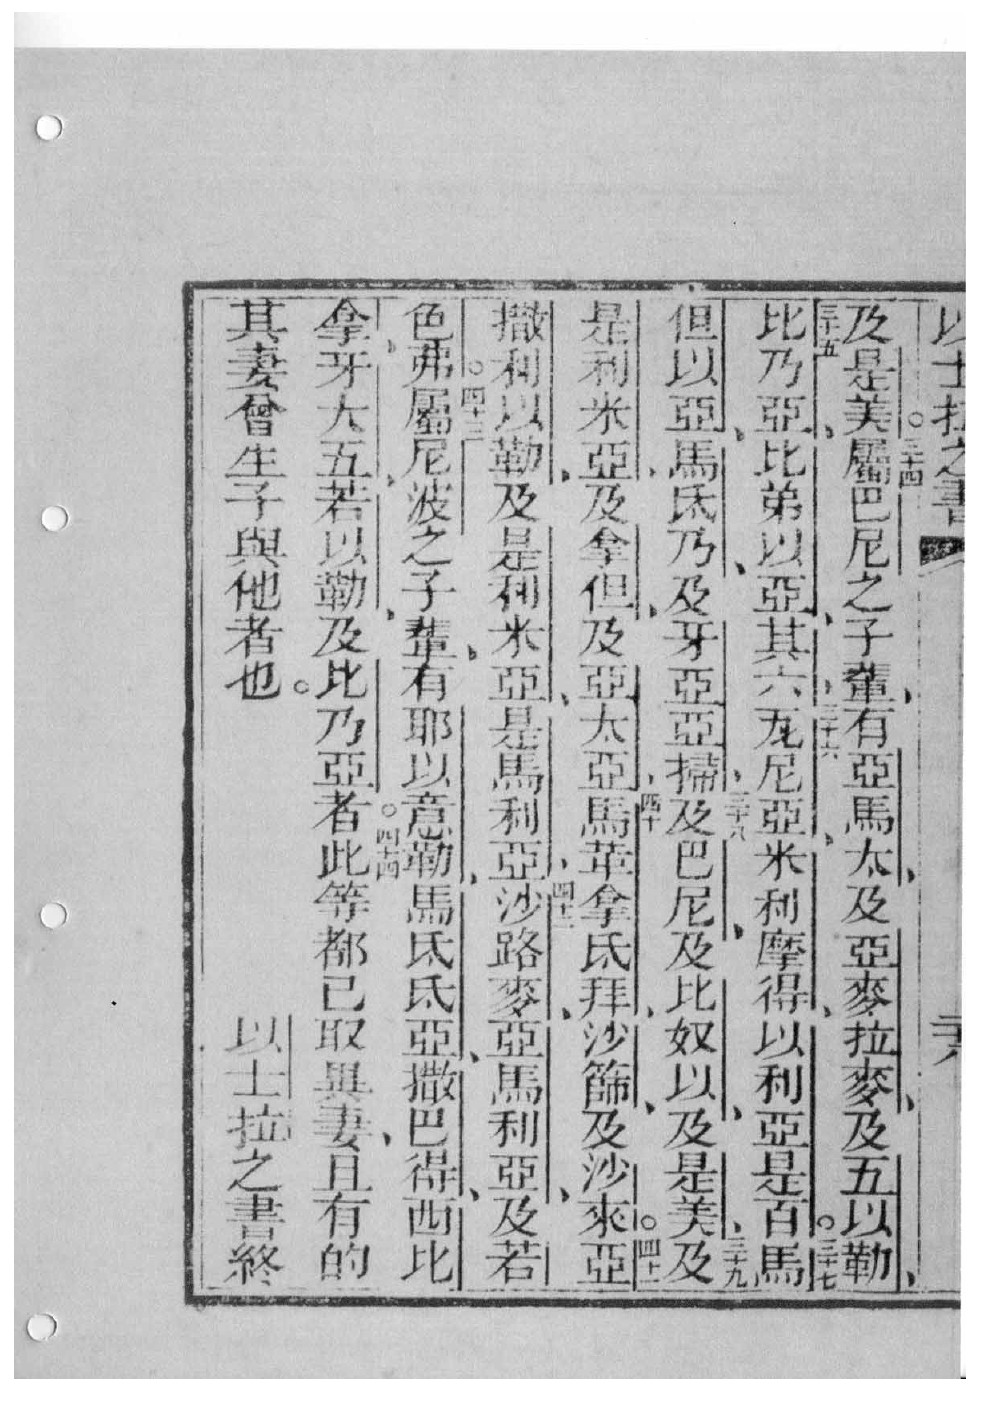 以士拉之書 二十八
及是美。三十四屬巴尼之子輩、有亞馬太、及亞麥拉麥、及五以勒、
三十五比乃亞、比弟以亞、其六、三十六尼亞、米利摩得、以利亞是百。三十七馬
但以亞、馬氐乃、及牙亞亞掃、三十八及巴尼、及比奴以、及是美、三十九及
是利米亞、及拿但、及亞太亞、四十馬革拿氐拜、沙篩、及沙來。四十一亞
撒利以勒、及是利米亞、是馬利亞、四十二沙路麥、亞馬利亞、及若
色弗。四十三屬尼波之子輩、有耶以意勒、馬氐氐亞、撒巴得、西比
拿、牙大五、若以勒、及比乃亞者。四十四此等都已取異妻、且有的
其妻曾生子與他者也。 以士拉之書終